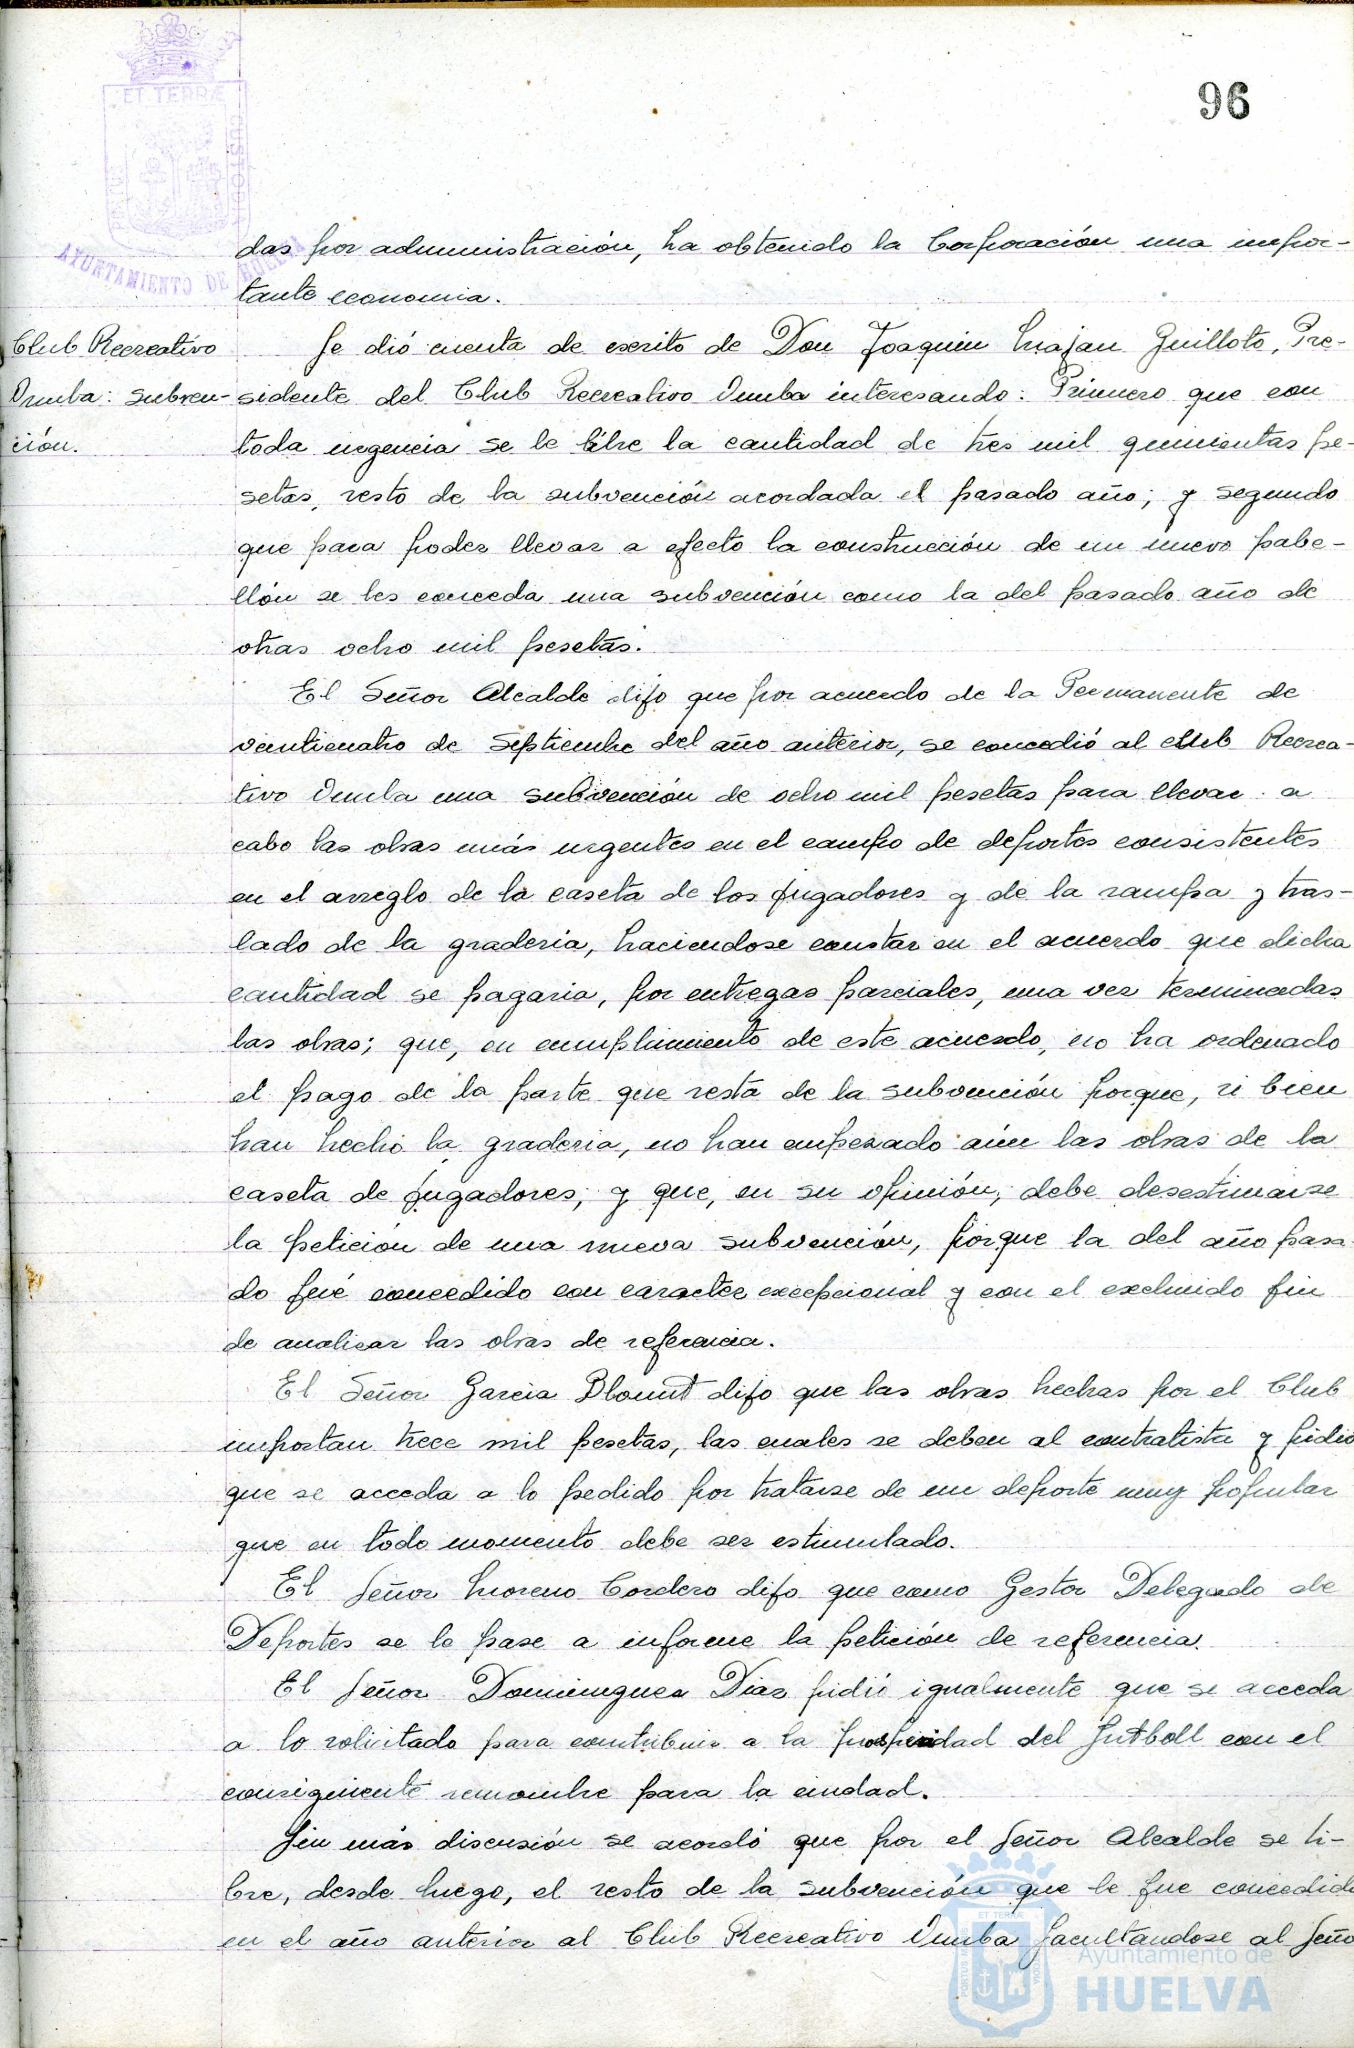 96
ET TERRÆ
AYUNTAMIENTO DE HUELVA
das por administración, ha obtenido la Corporación una impor-
tante economia.
Club Recreativo
Onuba: subven-
ción.
Se dió cuenta de escrito de Don Joaquin Guilloto, Pre-
sidente del Club Recreativo Onuba interesando: Primero que con
toda urgencia se le libre la cantidad de tres mil quinientas pe-
setas, resto de la subvención acordada el pasado año; y segundo
que para poder llevar a efecto la construcción de un nuevo pabe-
llón se les conceda una subvención como la del pasado año de
otras ocho mil pesetas.
El Señor Alcalde dijo que por acuerdo de la Permanente de
veinticuatro de Septiembre del año anterior, se concedió al Club Recrea-
tivo Onuba una subvención de ocho mil pesetas para llevar a
cabo las obras más urgentes en el campo de deportes consistentes
en el arreglo de la caseta de los jugadores y de la rampa y tras-
lado de la graderia, haciendose constar en el acuerdo que dicha
cantidad se pagaria, por entregas parciales, una vez terminadas
las obras; que, en cumplimiento de este acuerdo, no ha ordenado
el pago de la parte que resta de la subvención porque, si bien
han hecho la graderia, no han empezado aún las obras de la
caseta de jugadores; y que, en su opinión, debe desestimarse
la petición de una nueva subvención, porque la del año pasa
do fué concedido con caracter excepcional y con el fin
de las obras de referencia.
El Señor Garcia Blount dijo que las obras hechas por el Club
importan trece mil pesetas, las cuales se deben al contratista y pidió
que se acceda a lo pedido por tratarse de un deporte muy popular
que en todo momento debe ser estimulado.
El Señor Moreno Cordero dijo que como Gestor Delegado de
Deportes se le pase a informe la petición de referencia.
El Señor Dominguez Diaz pidió igualmente que se acceda
a lo solicitado para contribuir a la del futboll con el
consiguiente renombre para la ciudad.
Sin más discusión se acordó que por el Señor Alcalde se li-
bre, desde luego, el resto de la subvención que le fue concedida
en el año anterior al Club Recreativo Onuba facultandose al Seño
Ayuntamiento de
HUELVA